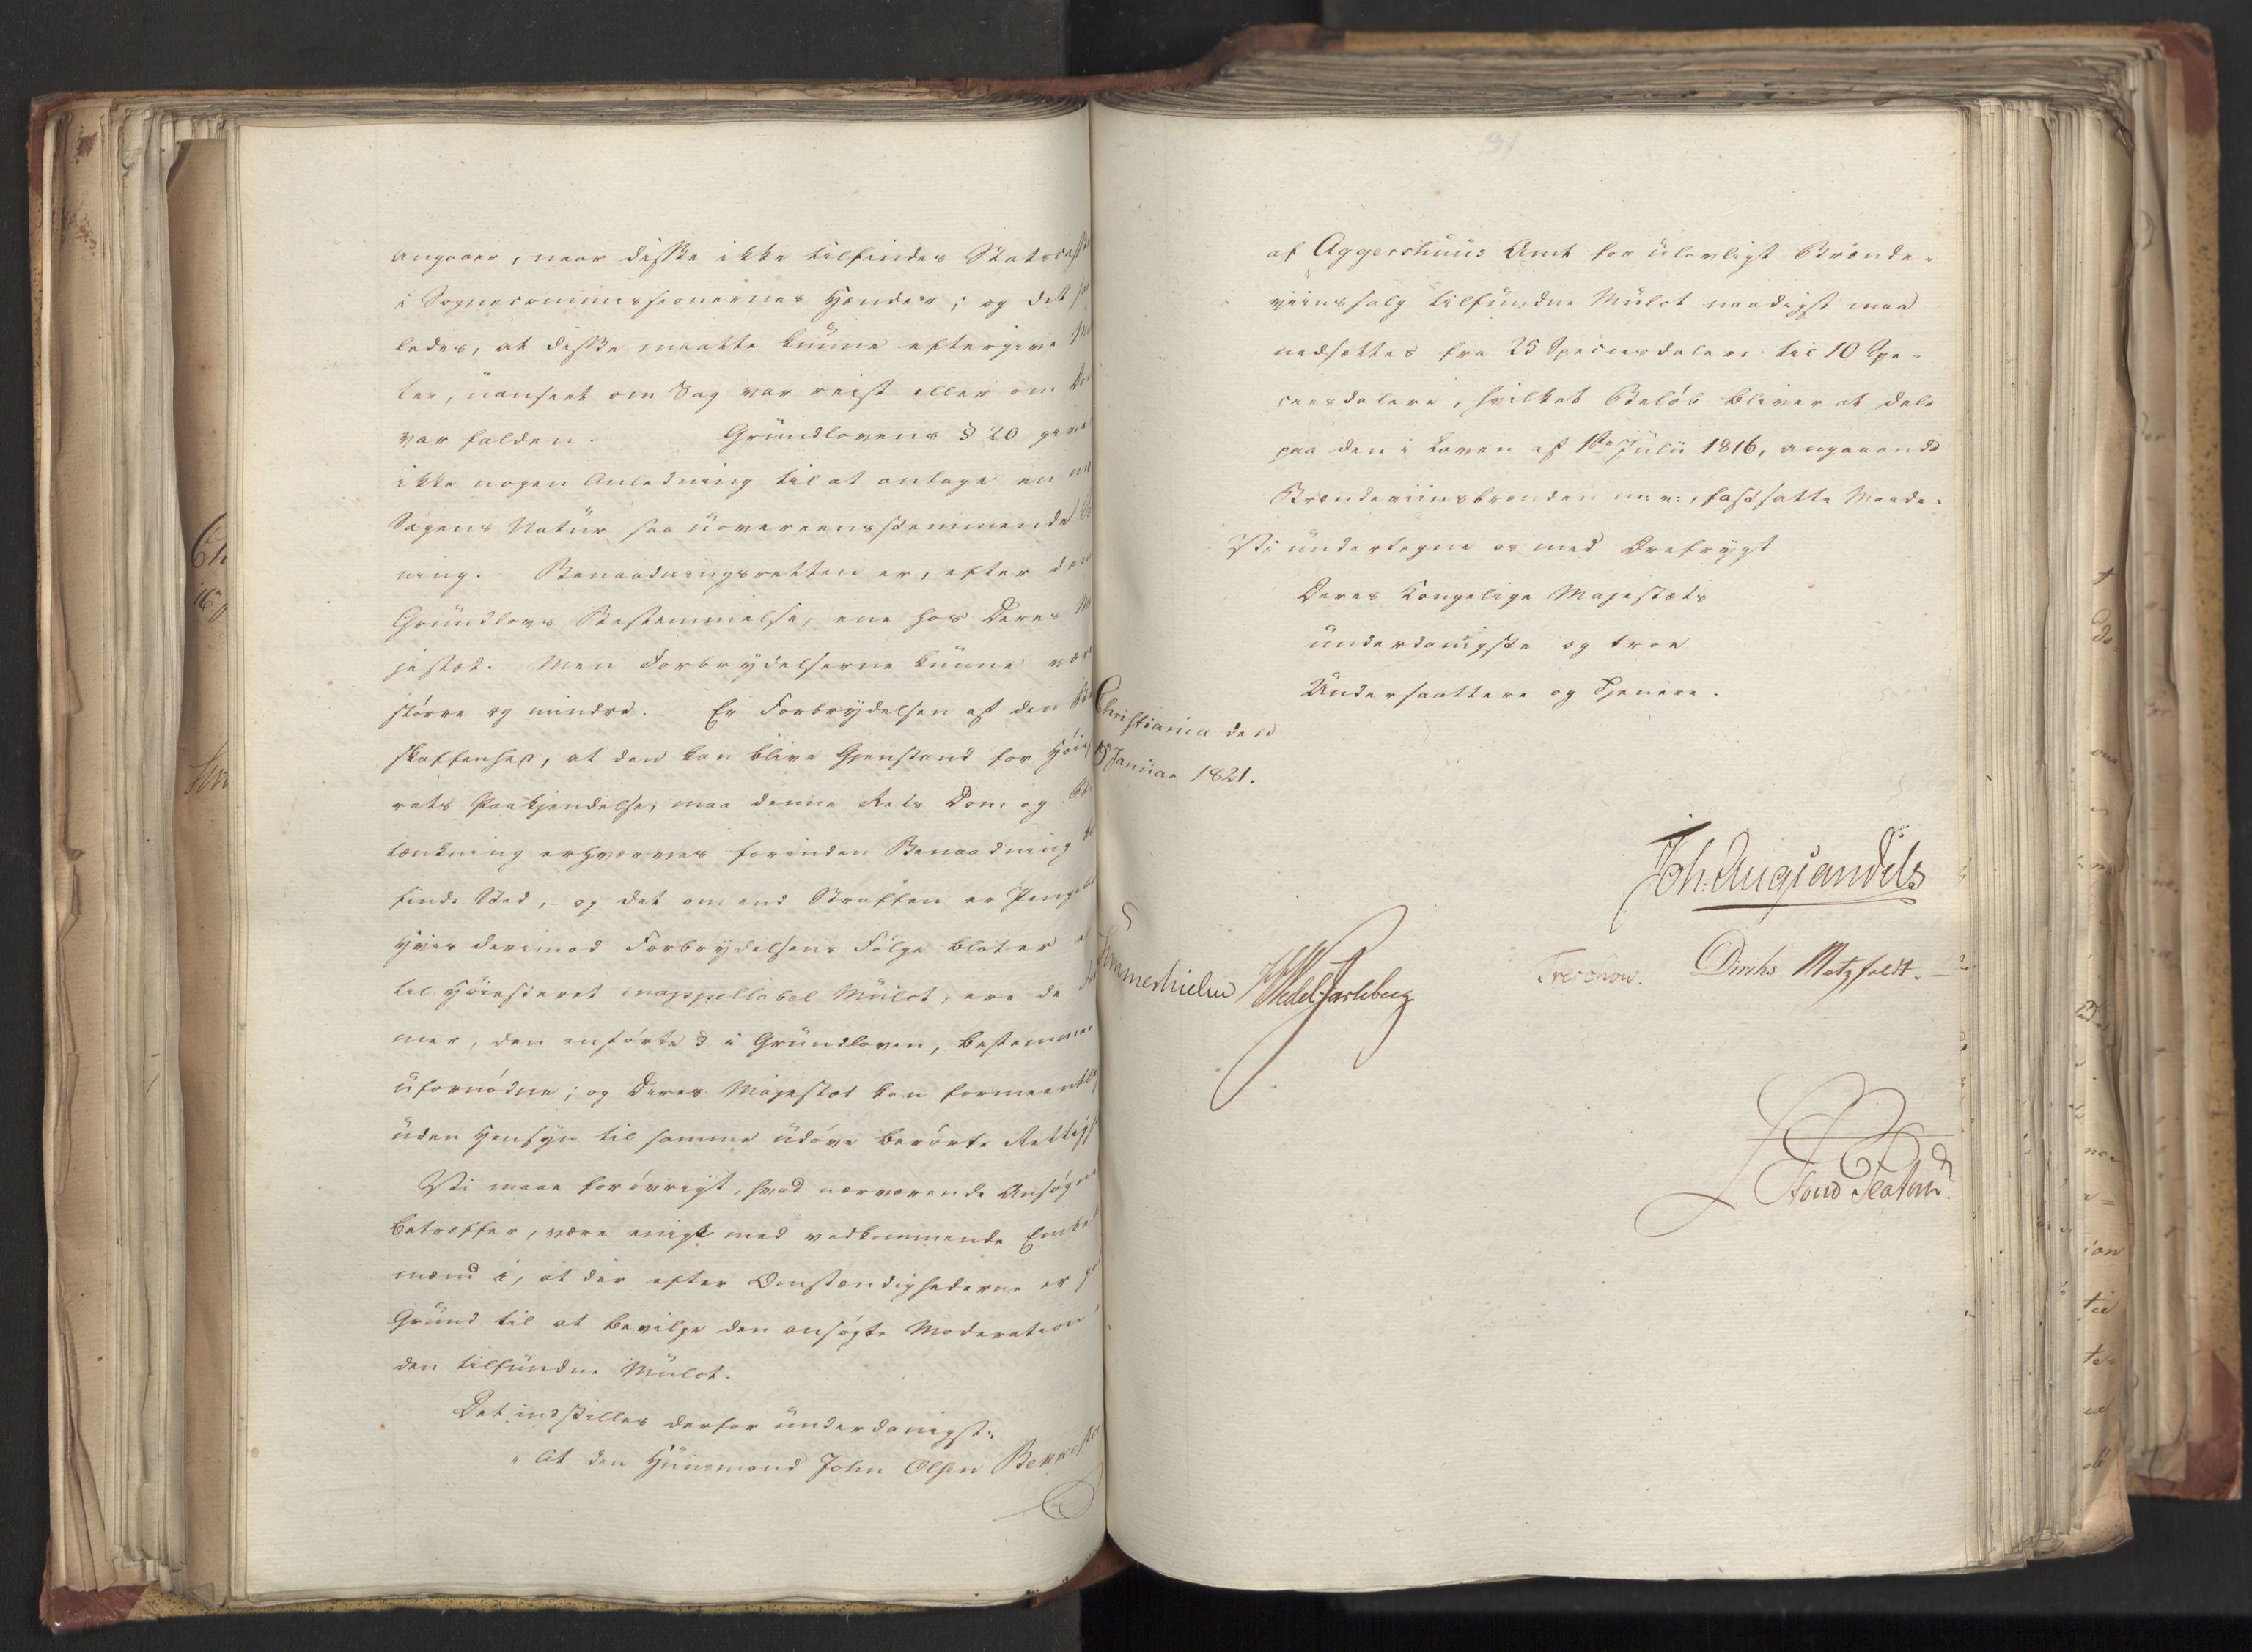 angaaer, naar disse ikke tilfindes Statscass
i Sognecommissionernes Hænder; og det
ledes, at disse maatte kunne eftergive
ter, uanseet om Sag var reist eller om
var falden. Grundlovens § 20 give
ikke nogen Anledning til at antage en
Sagens Natur saa uovereensstemmende
ning. Benaadningsretten er, efter den
Grundlovs Bestemmelse, ene hos Deres Ma
jestæt. Men Forbrydelserne kunne være
større og mindre. Er Forbrydelsen af den Be
skaffenhed, at den kan blive Gjenstand for Høieste
rets Paakjendelse, maa denne Rets Dom og Be
tænkning erhverves forinden Benaadning
finde Sted, og det om end Straffen er Penge
Hvis derimod Forbrydelsens Følge blot er
til Høiesteret inappellabel Mulct, ere de
mer, den anførte § i Grundloven, bestemmer
ufornødne; og Deres Majestæt kan formeentlig
uden Hensyn til samme udøve berørte Rettigh
Vi maae forøvrigt, hvad nærværende Ansøgn
betræffer, være enige med vedkommende Embed
mænd i, at der efter Omstændighederne er
Grund til at bevilge den ansøgte Moderation
den tilfundne Mulct.
Det indstilles derfor underdanigst:
"At den Huusmand John Olsen
af Aggershuus Amt for ulovligt Brænde-
viinssalg tilfundne Mulct naadigst maa
nedsættes fra 25 Speciesdalere til 10 Spe-
ciesdalere, hvilket Beløb bliver at dele
paa den i Loven af 1ste Julii 1816, angaaende
Brændeviinsbrænden m: v:, fastsatte Maade.
Vi undertegne os med Ærefrygt
Deres Kongelige Majestæts
underdanigste og troe
Undersaattere og Tjenere.
Christiania den
Januar 1821.
Joh. Aug. Sandels
Sommerhielm WedelJarlsberg Treschow. Diriks Motzfeldt.